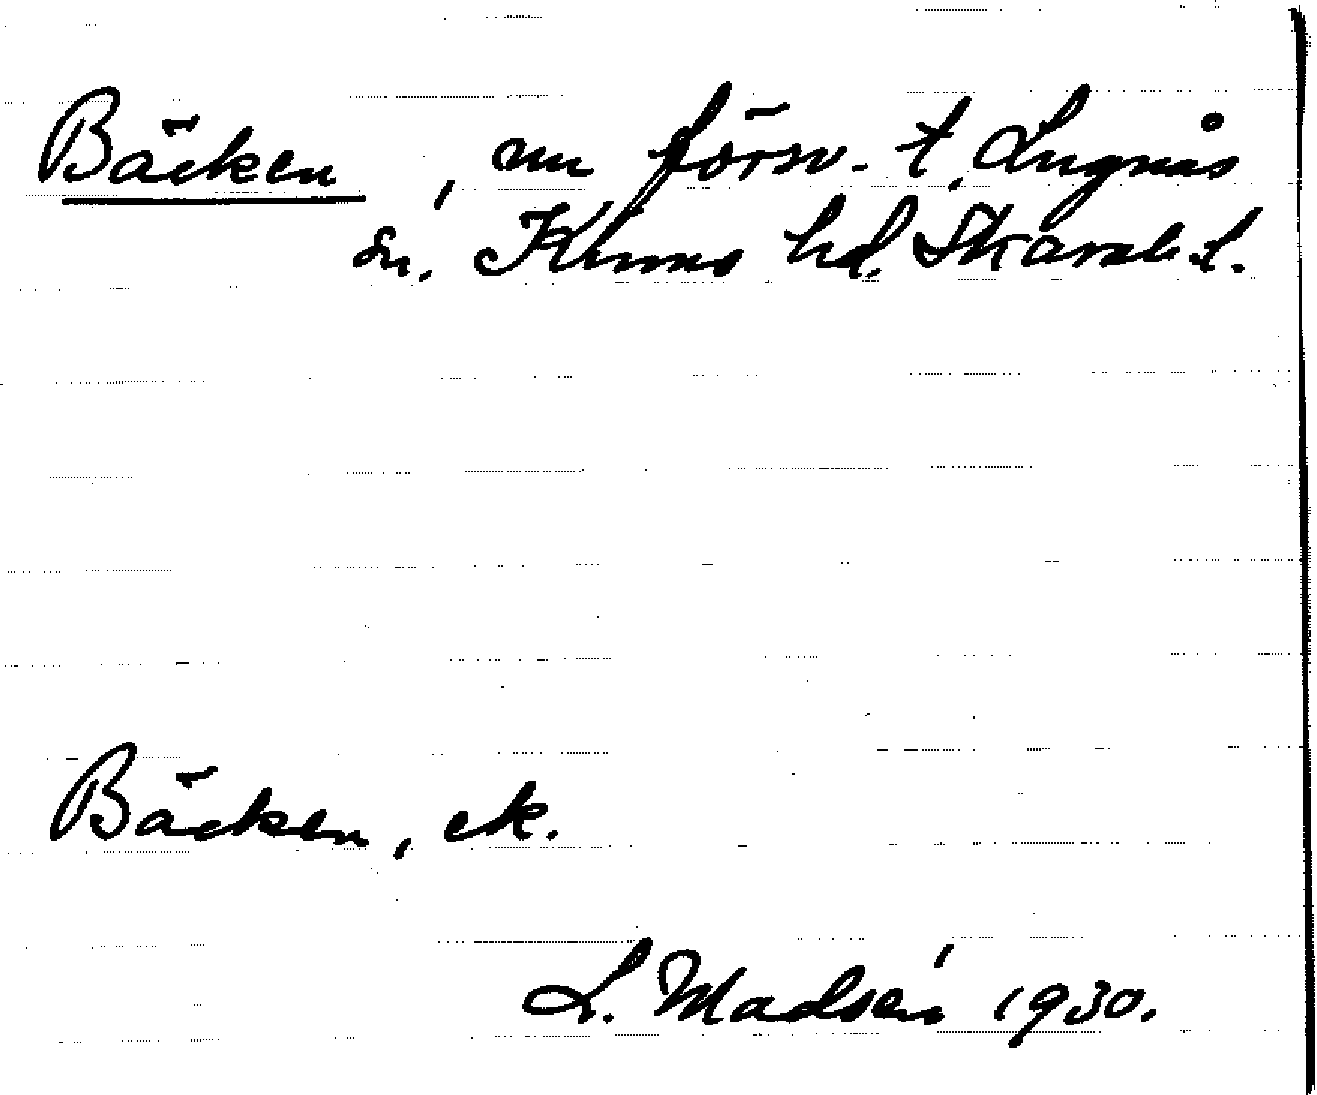 Bäcken, nu försv. t. Lugnås
sn. Kinne hd. Skarab. l.
Bäcken, ek.
L. Madsén 1930.